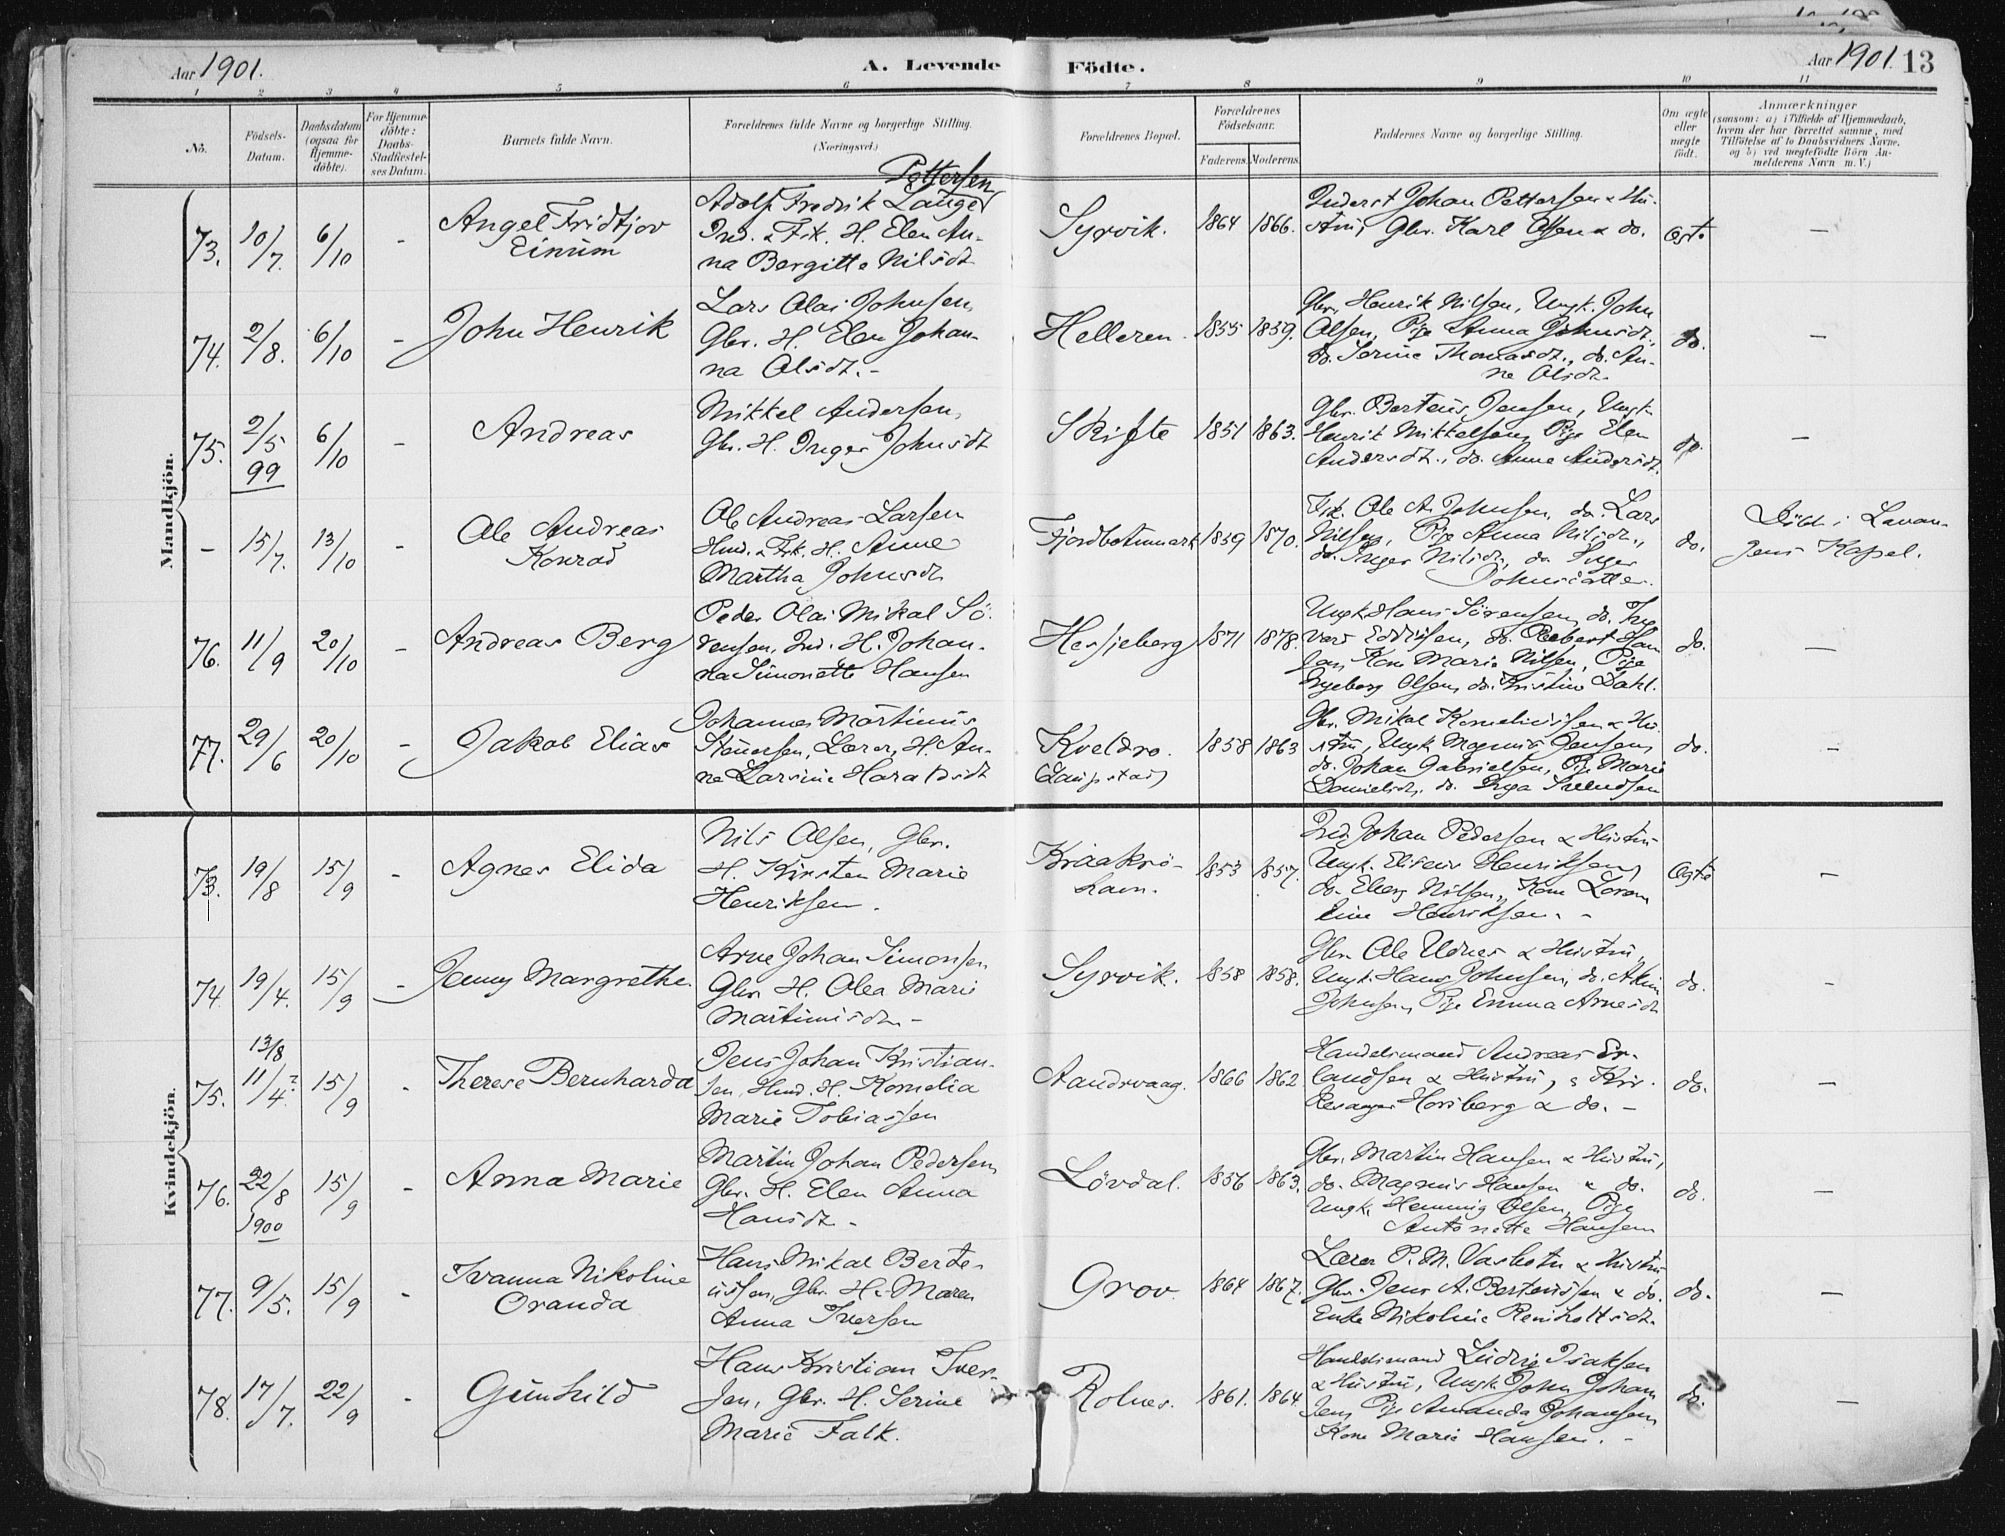 Aar 1901.
A. Levende Födte.
Aar 1901. 13
1 2 3 4 5 6 7 8 9 10 11
No.
Födsels-
Datum.
Daabsdatum
(ogsaa för
Hjemme-
döbte).
For Hjemme-
döbte:
Daabs-
Stadfæstel-
ses Datum.
Barnets fulde Navn.
Forældrenes fulde Navne og borgerlige Stilling.
(Næringsvei.)
Forældrenes Bopæl.
Forældrenes
Födselsaar.
Faderens. Moderens.
Faddernes Navne og borgerlige Stilling.
Om ægte
eller
uægte
født.
Anmærkninger
(saasom: a) i Tilfælde af Hjemmedaab,
hvem der har forrettet samme, med
Tilföielse af to Daabsvidners Navne,
og b) ved uægtefödte Börn An-
melderens Navn m. V.)
Mandkjön.
73. 10/7. 6/10 -
Angel Fridtjov
Einum
Pettersen
Adolf Fredrik Langed
Ind. & Fsk. H. Elen An-
na Bergitte Nilsdt.
Syrvik. 1864 1866.
Inderst Johan Pettersen & Hu-
stru, Gbr. Karl Olsen & do.
ægte —
74. 2/8. 6/10 -
John Henrik
Lars Olai Johnsen,
Gbr. H. Elen Johan-
na Olsdt. -
Helleren. 1855 1859.
Gbr. Henrik Nilsen, Ungk. John
Olsen, Pige Anna Johnsdt.,
do. Serine Thomasdt., do. An-
ne Olsdt.
do. —
75. 2/5 99 6/10 -
Andreas
Mikkel Andersen,
Gbr. H. Inger Johnsdt
Skifte 1851 1863.
Gbr. Berteus Jensen, Ungk.
Henrik Mikkelsen, Pige Elen
Andersdt., do. Anne Andersdt.
do. —
- 15/7. 13/10 -
Ole Andreas
Konrad
Ole Andreas Larsen
Hmd. & Fsk. H. Anne
Martha Johnsdt.
Fjordbotnmark 1859 1870.
Fsk. Ole A. Johnsen, do. Lars
Nilsen, Pige Anna Nilsdt.,
do. Inger Nilsdt., do. Inger
Johnsdatter.
do.
Døbt i Lavan-
gens Kapel.
76. 11/9 20/10 -
Andreas Berg
Peder Olai Mikal Sö-
rensen, Ind. H. Johan-
na Simonette Hansen
Hesjeberg 1871 1878.
Ungk. Hans Sörensen, do. Ing-
vart Eddisen, do. Robert Han
sen, Kone Marie Nilsen, Pige
Ingeborg Olsen, do. Kristine Dahl.
do. —
77. 29/6 20/10 -
Jakob Elias
Johannes Martinus
Stenersen, Lærer, H. An-
ne Larsine Haraldsdt
Kveldro.
(Gaupstad) 1858 1863
Gbr. Mikal Kornelius­sen & Hu-
stru, Ungk. Magnus Jensen,
do. Johan Gabrielsen, Pige Marie
Danielsdt., do. Inga Svendsen
do. —
Kvindekjön.
73. 19/8 15/9 -
Agnes Elida
Nils Olsen, Gbr.
H. Kirsten Marie
Henriksen.
Kraakrö-
havn. 1853 1857.
Ind. Johan Pedersen & Hustru
Ungk. Eliseus Henriksen,
do. Eberg Nilsen, Kone Loren
tine Henriksen. -
Ægte —
74. 19/4. 15/9 -
Jenny Margrethe.
Arne Johan Simonsen
Gbr. H. Olea Marie
Martinusdt. -
Syrvik. 1858 1858.
Gbr. Ole Udnes & Hustru,
Ungk. Hans Johnsen, do. Akim
Johnsen, Pige Emma Arnesdt
do. -
75. 13/8 11/4? 15/9 -
Therese Bernharda
Jens Johan Kristian-
sen, Hmd. H. Kornelia
Marie Tobiassen
Aandrvaag. 1866 1862
Handelsmand Andreas Er-
landsen & Hustru, Kir-
kesanger Horsberg & do. -
do. —
76. 22/8 1900 15/9 -
Anna Marie
Martin Johan Pedersen,
Gbr. H. Elen Anna
Hansdt. -
Lövdal. 1856 1863.
Gbr. Martin Hansen & Hustru,
do. Magnus Hansen & do.
Ungk. Hemmig Olsen, Pige
Antonette Hansen
do. —
77. 9/5. 15/9 -
Ivanna Nikoline
Oranda
Hans Mikal Berte-
ussen, Gbr. H. Maren
Anna Iversen
Grov 1864 1867.
Lærer P. M. Vasbotn & Hustru
Gbr. Jens A. Berteussen & do.
Enke Nikoline Reinholtsdt.
do. —
78. 17/7. 22/9 -
Gunhild
Hans Kristian Iver-
sen, Gbr. H. Serine
Marie Falk.
Rolnes. 1861. 1864.
Handelsmand Ludvig Isaksen
& Hustru, Ungk. John Johan
sen, Pige Amanda Johansen,
Kone Marie Hansen. -
do. —